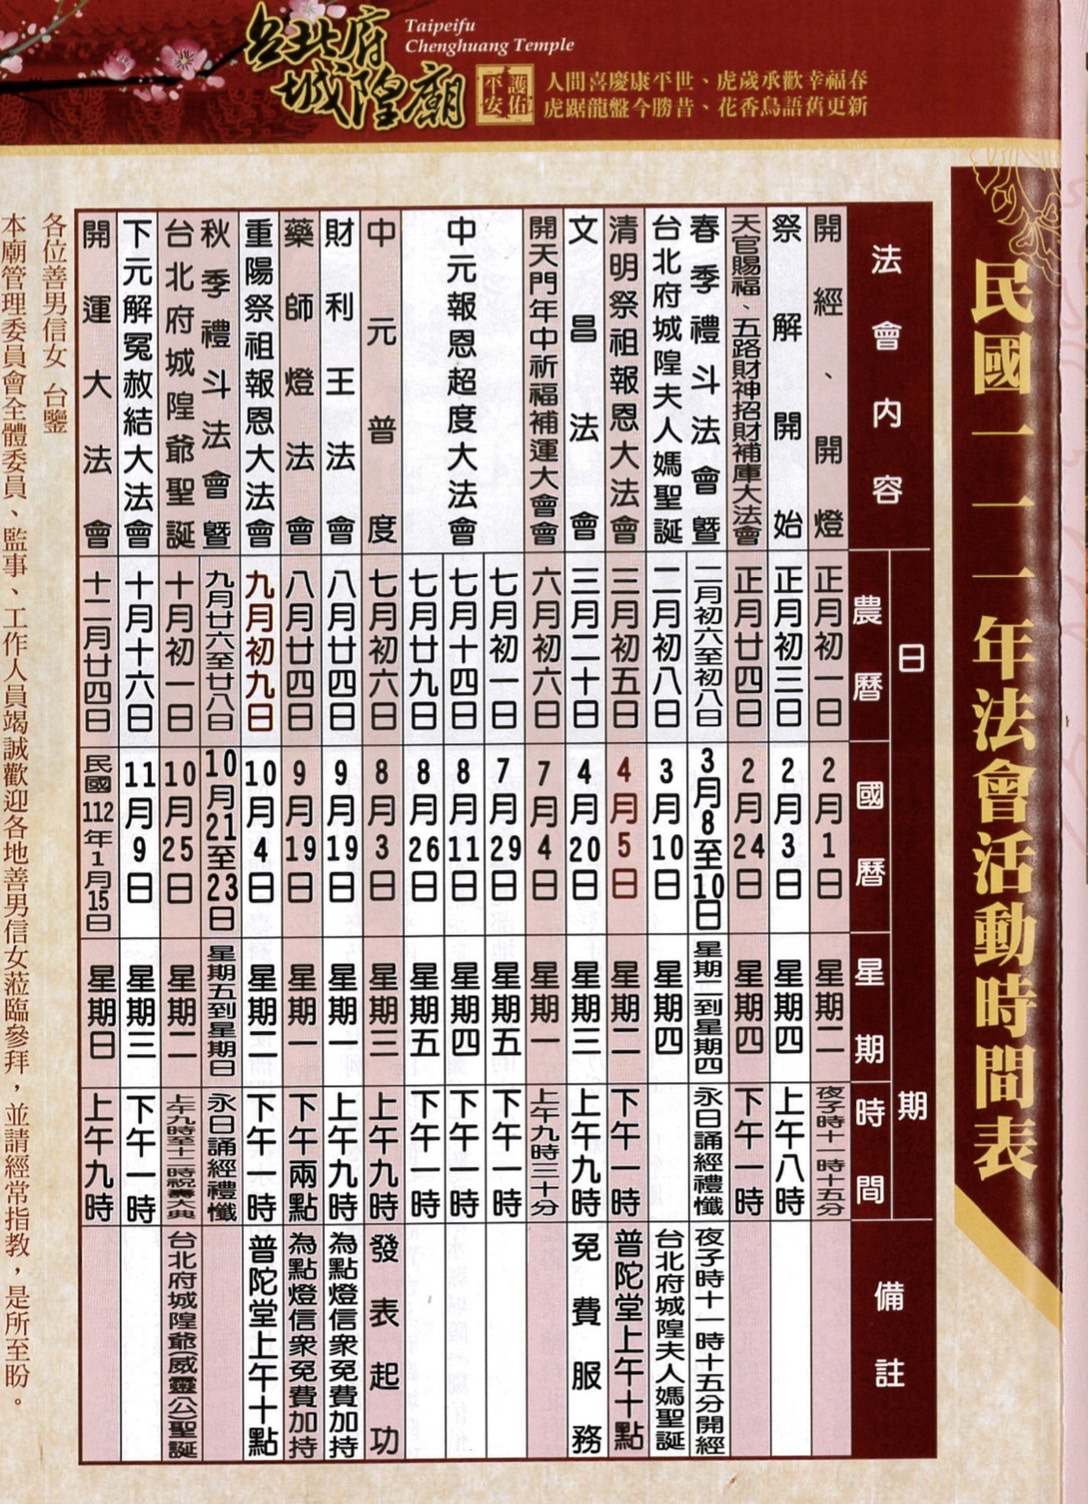 台北府
城隍廟
Taipeifu
Chenghuang Temple
護佑
平安
人間喜慶康平世、虎歲承歡幸福春
虎踞龍盤今勝昔、花香鳥語舊更新
民國一一一年法會活動時間表
法會內容
日期
農曆
國曆
星期
時間
備註
開經、開燈
正月初一日
2月1日
星期二
夜子時十一時十五分
祭解開始
正月初三日
2月3日
星期四
上午八時
天官賜福、五路財神招財補庫大法會
正月廿四日
2月24日
星期四
下午一時
春季禮斗法會暨
二月初六至初八日
3月8至10日
星期二到星期四
永日誦經禮懺
夜子時十一時十五分開經
台北府城隍夫人媽聖誕
二月初八日
3月10日
星期四
台北府城隍夫人媽聖誕
清明祭祖報恩大法會
三月初五日
4月5日
星期二
下午一時
普陀堂上午十點
文昌法會
三月二十日
4月20日
星期三
上午九時
免費服務
開天門年中祈福補運大會會
六月初六日
7月4日
星期一
上午九時三十分
中元報恩超度大法會
七月初一日
7月29日
星期五
下午一時
七月十四日
8月11日
星期四
下午一時
七月廿九日
8月26日
星期五
下午一時
中元普度
七月初六日
8月3日
星期三
上午九時
發表起功
財利王法會
八月廿四日
9月19日
星期一
上午九時
為點燈信眾免費加持
藥師燈法會
八月廿四日
9月19日
星期一
下午兩點
為點燈信眾免費加持
重陽祭祖報恩大法會
九月初九日
10月4日
星期二
下午一時
普陀堂上午十點
秋季禮斗法會暨
九月廿六至廿八日
10月21至23日
星期五到星期日
永日誦經禮懺
台北府城隍爺聖誕
十月初一日
10月25日
星期二
上午九時至十一時祝壽大典
台北府城隍爺(威靈公)聖誕
下元解冤赦結大法會
十月十六日
11月9日
星期三
下午一時
開運大法會
十二月廿四日
民國112年1月15日
星期日
上午九時
各位善男信女 台鑒
本廟管理委員會全體委員、監事、工作人員竭誠歡迎各地善男信女蒞臨參拜，並請經常指教，是所至盼。